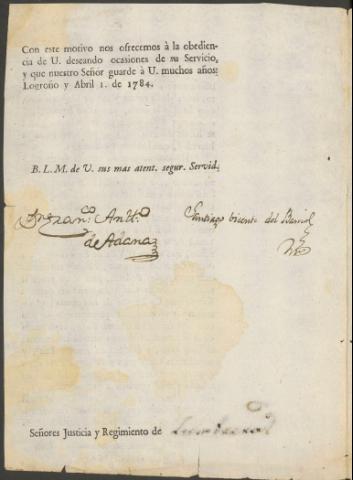 Con este motivo nos ofrecemos à la obedien-
cia de U. deseando ocasiones de su Servicio,
y que nuestro Señor guarde à U. muchos años:
Logroño y Abril 1. de 1784.
B. L. M. de U. sus mas atent. segur. Servid.
Franco. Antto.
de Adana
Santiago Vicente del Barrio
Señores Justicia y Regimiento de